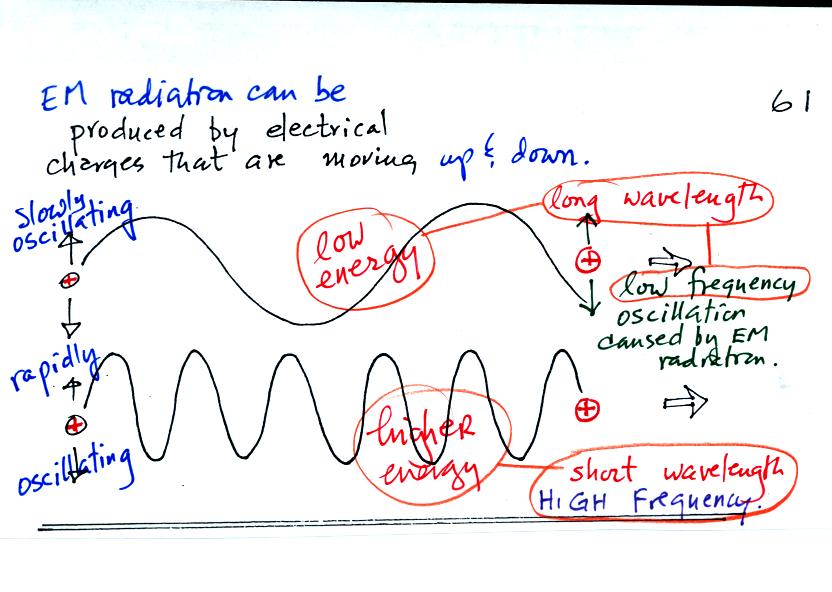 61
EM radiation can be
produced by electrical
charges that are moving up & down.
slowly
oscillating
+
low
energy
long wavelength
+
low frequency
oscillation
caused by EM
radiation.
rapidly
+
oscillating
higher
energy
+
short wavelength
HIGH Frequency.